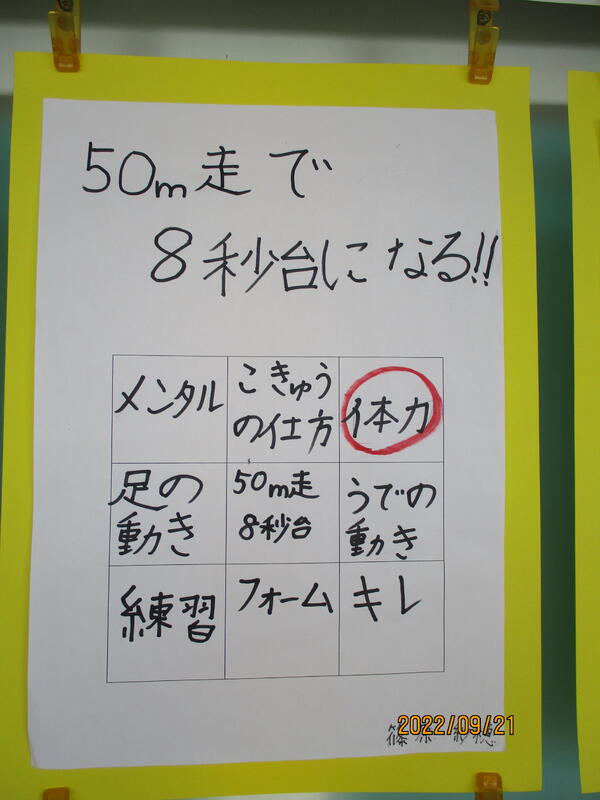 50m走で
8秒台になる!!
メンタル
こきゅう
の仕方
体力
足の
動き
50m走
8秒台
うでの
動き
練習
フォーム
キレ
2022/09/21